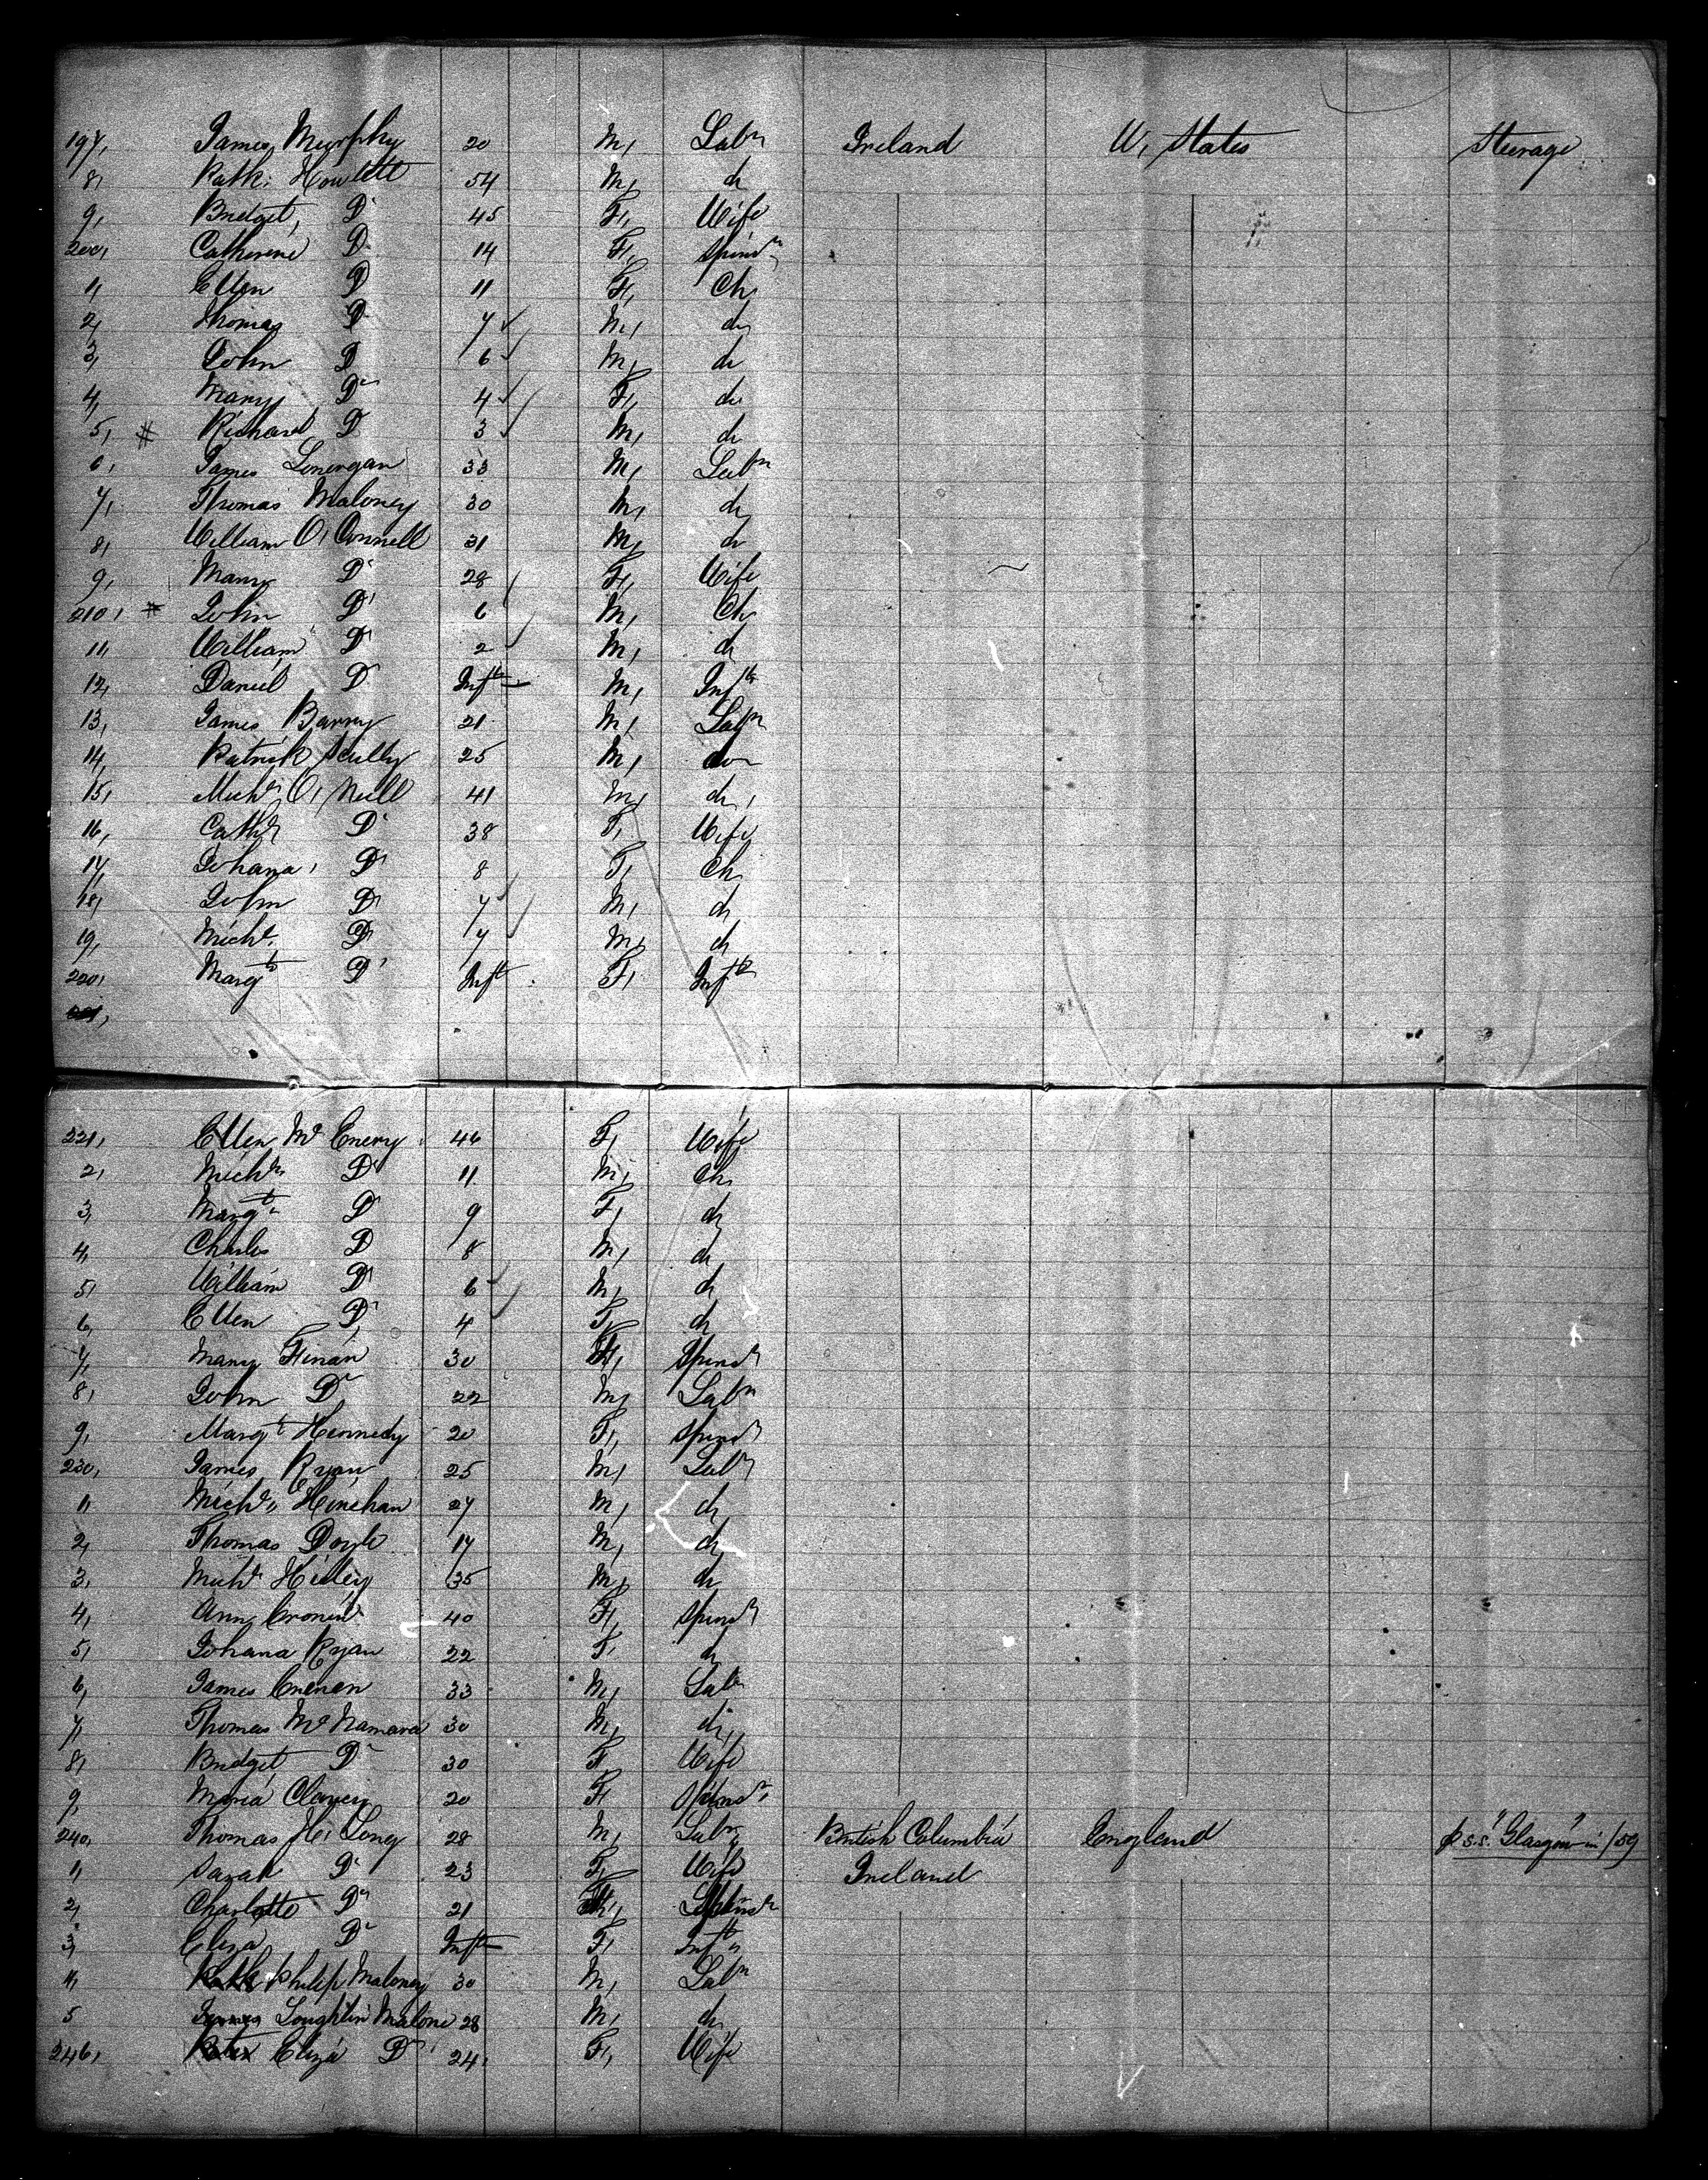 197, James Murphy 20 M, Labr Ireland U, States Steerage
8, Patk: Howlett 54 M, do
9, Bridget, Do 45 F, Wife
200, Catherine Do 14 F, Spinsr
1, Ellen Do 11 F, Ch
2, Thomas Do 7 M, do
3, John Do 6 M, do
4, Mary Do 4 F, do
5, # Richard Do 3 M, do
6, James Lonergan 33 M, Labr
7, Thomas Maloney 30 M, do
8, William O, Connell 31 M, do
9, Mary Do 28 F, Wife
210, # John Do 6 M, Ch
11, William Do 2 M, do
12, Daniel Do Inft M, Inft
13, James Barry 21 M, Labr
14, Patrick Scully 25 M, do
15, Michl O, Neill 41 M, do,
16, Cathr Do 38 F, Wife
17, Johana, Do 8 F, Ch
18, John Do 7 M, do
19, Michl. Do 7 M, do
220, Margt Do Inft F, Inft
221,
221, Ellen Mc Enery 46 F, Wife
2, Michl Do 11 M, Ch
3, Margt Do 9 F, do
4, Charles Do 8 M, do
5, William Do 6 M, do
6, Ellen Do 4 F, do
7, Mary Finan 30 F, Spinsr
8, John Do 22 M, Labr
9, Margt Kennedy 20 F, Spinsr
230, James Ryan 25 M, Labr
1, Michl Hinchan 27 M, do
2, Thomas Doyle 17 M, do
3, Michl Hilley 35 M, do
4, Ann, Cronin 40 F, Spinsr
5, Johana Ryan 22 F, do
6, James Crenen 33 M, Labr
7, Thomas Mc Namara 30 M, do,
8, Bridget, Do 30 F, Wife
9, Maria Clancy 20 F, Spinsr,
240, Thomas H, Long 28 M, Labr British Columbia England p s.s. "Glasgow" in /59
1, Sarah Do 23 F, Wife Ireland
2, Charlotte Do 21 F, Spinsr
3, Eliza Do Inft F, Inft
4, Philip Maloney 30 M, Labr
5 Loughlin Malone 28 M, do
246, Eliza Do 24, F, Wife